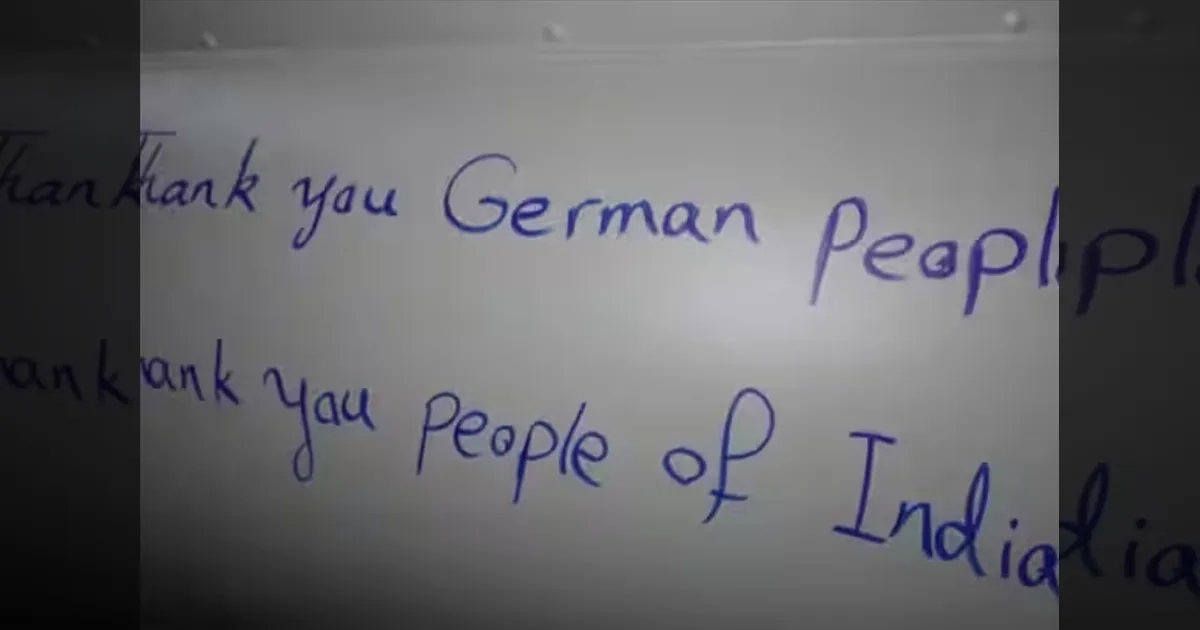 Thank you German Peopl
ank you People of India